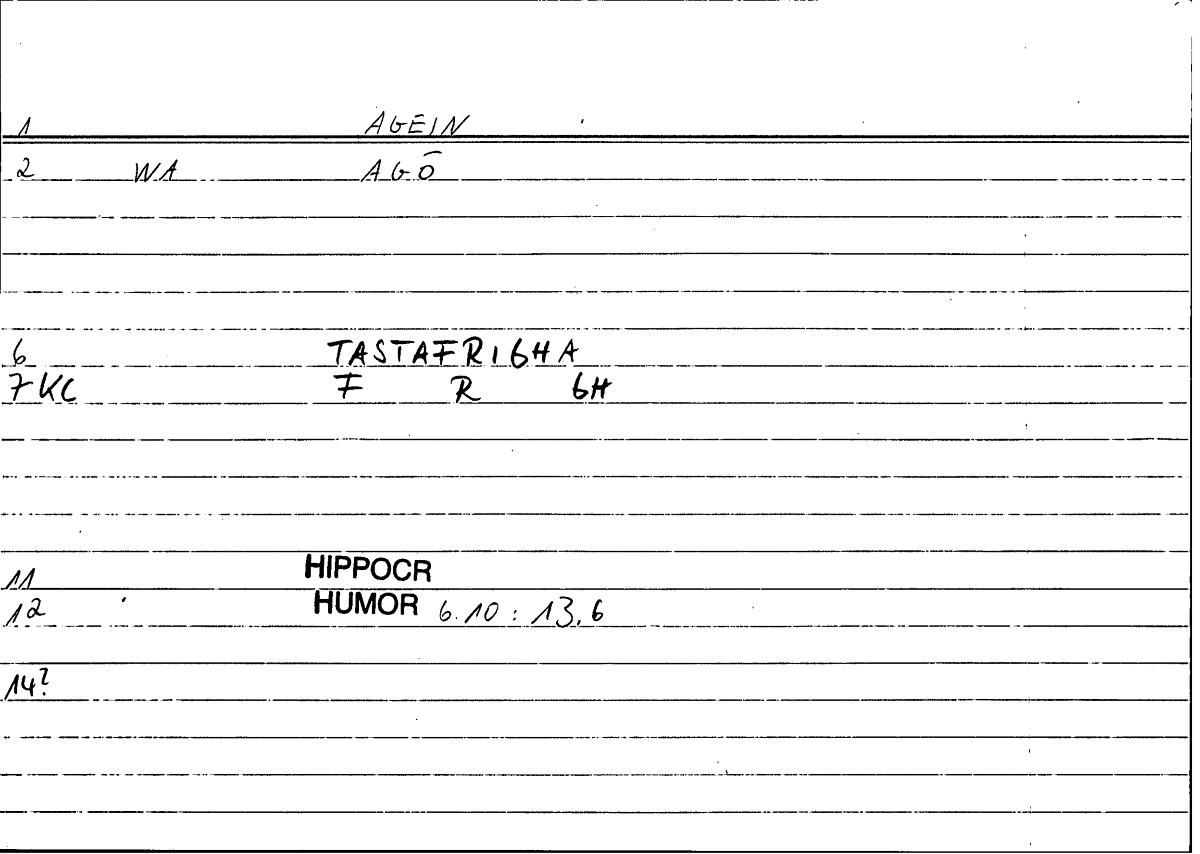 1 AGEIN
2 WA AGŌ
6 TASTAFRIGHA
7 KC F R GH
11 HIPPOCR
12 HUMOR 6.10 : 13.6
14?